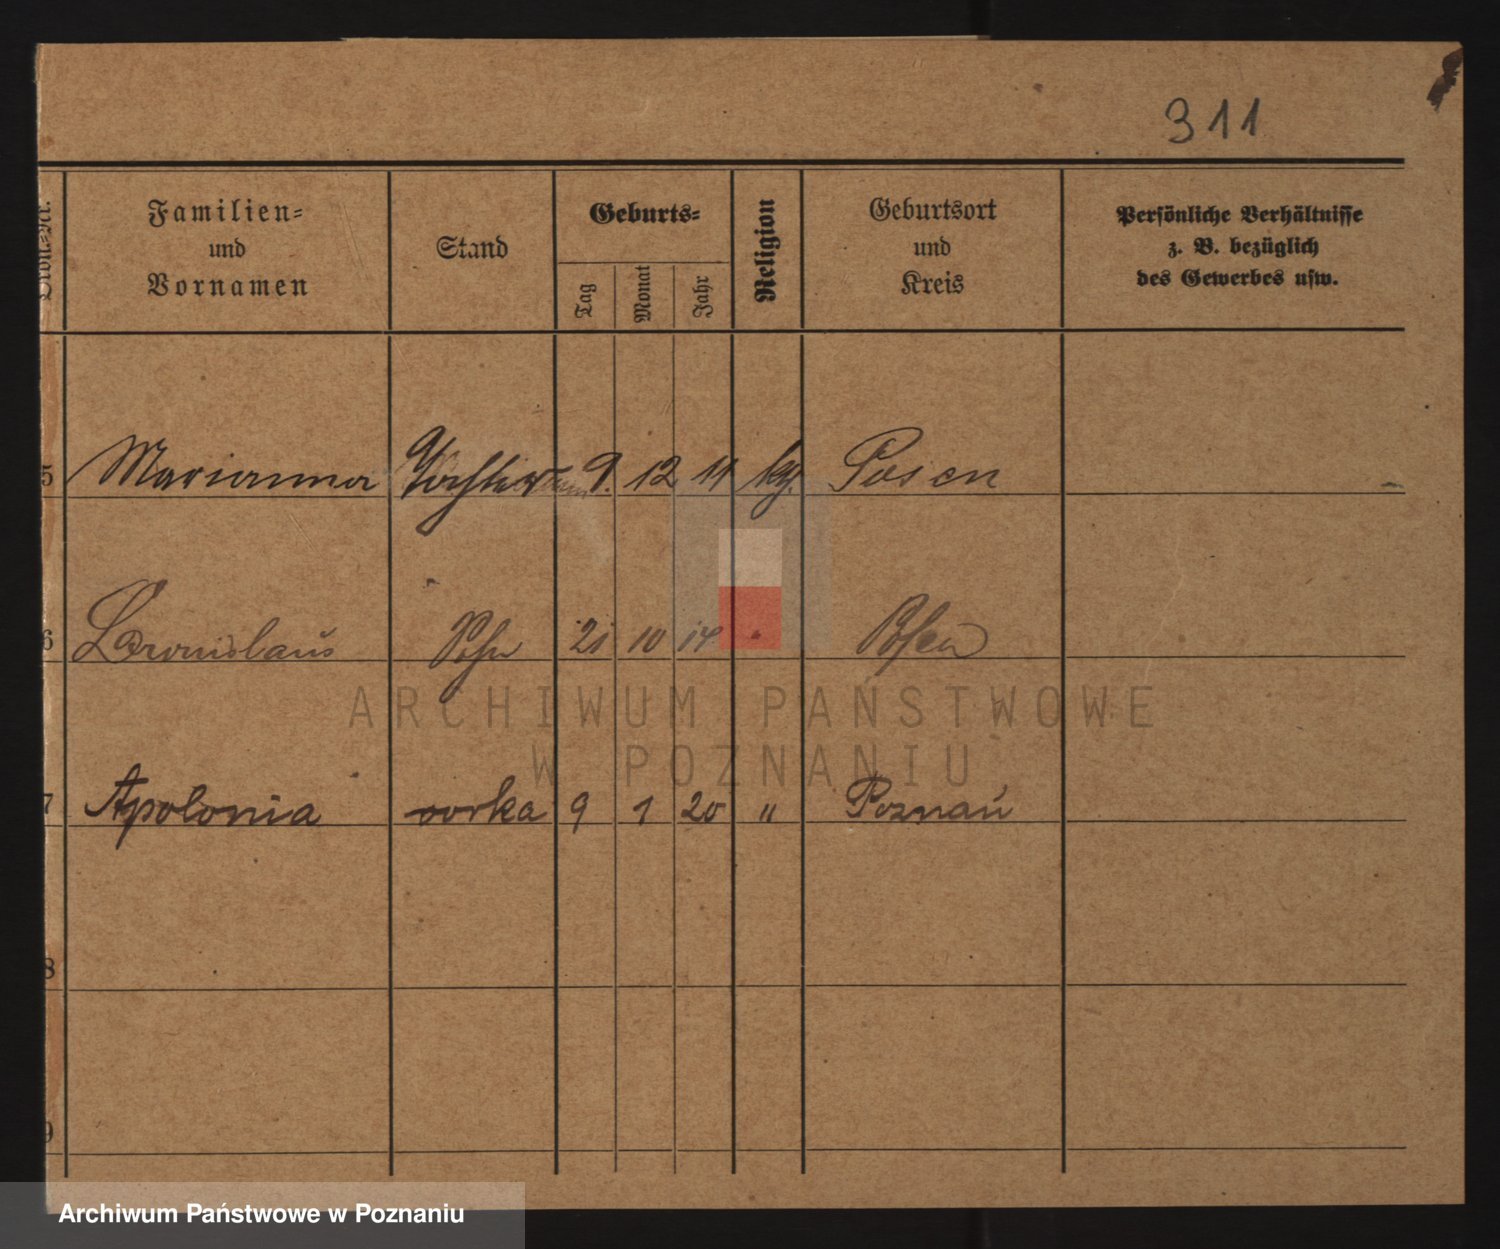 311
Ordn.-Nr.
Familien-
und
Vornamen
Stand
Geburts-
Tag
Monat
Jahr
Religion
Geburtsort
und
Kreis
Persönliche Verhältnisse
z. B. bezüglich
des Gewerbes usw.
5 Marianna Tochter 9. 12 11 kg. Posen
6 Bronislaus Sohn 21 10 14 " Posen
7 Apolonia córka 9 1 20 " Poznań
8
9
ARCHIWUM PAŃSTWOWE
W POZNANIU
Archiwum Państwowe w Poznaniu